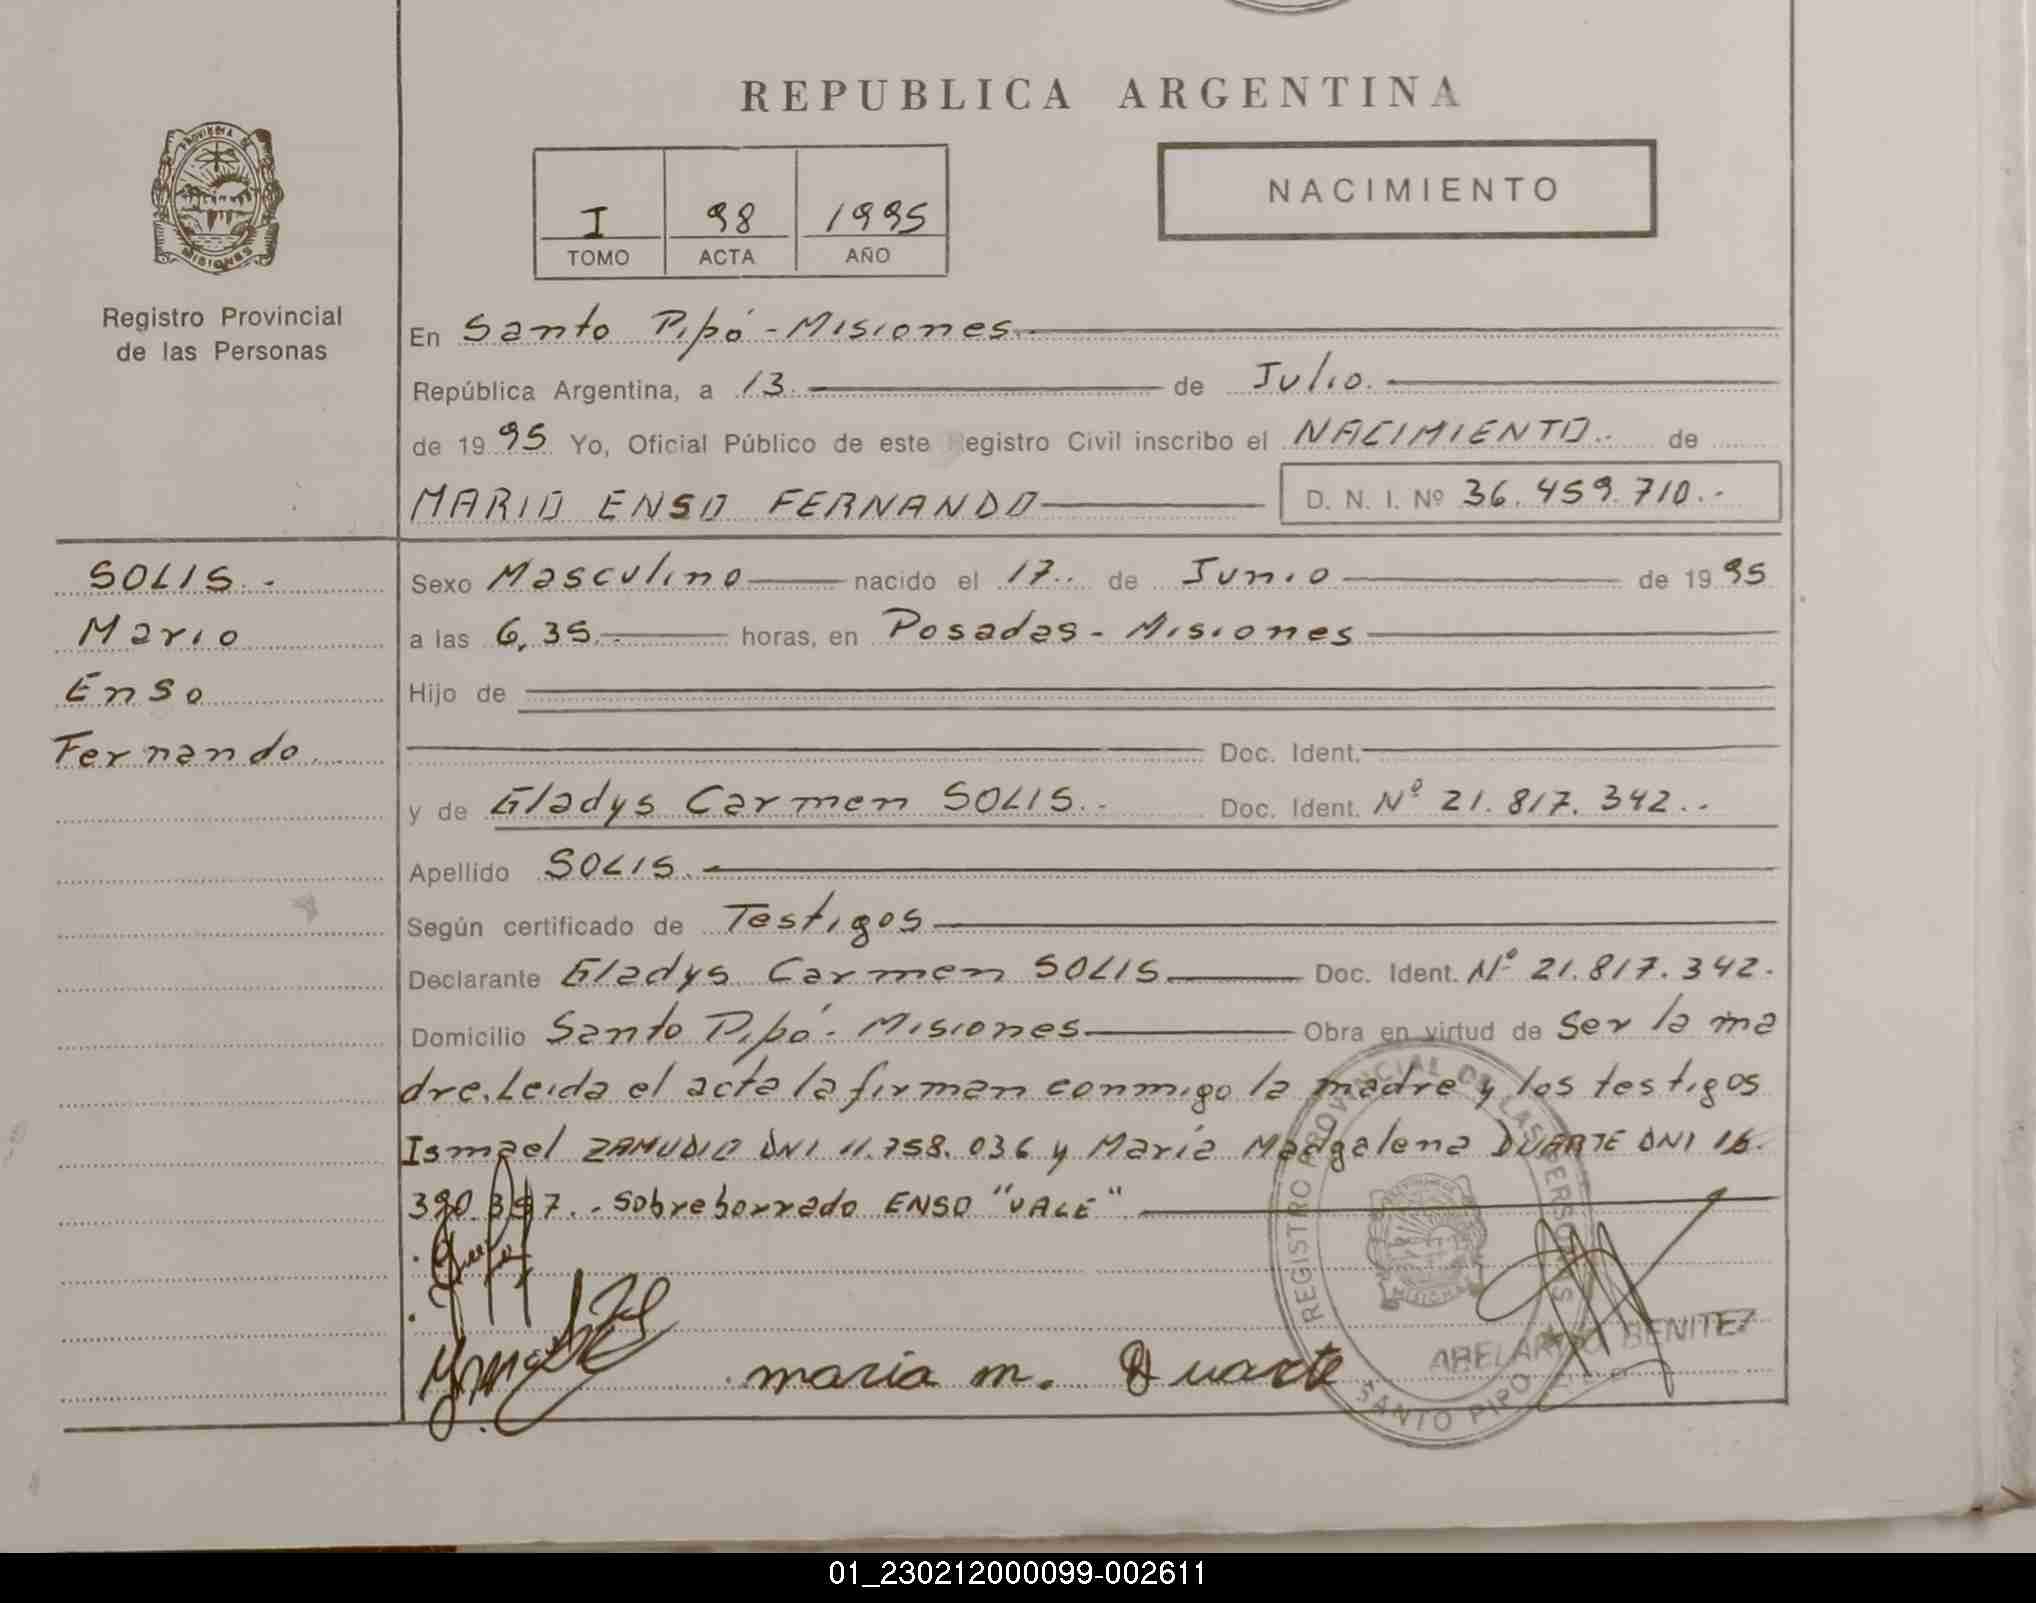 REPUBLICA ARGENTINA
PROVINCIA DE
MISIONES
Registro Provincial
de las Personas
I 98 1995
TOMO ACTA AÑO
NACIMIENTO
En Santo Pipó - Misiones.
República Argentina, a 13. de Julio.
de 1995 Yo, Oficial Público de este Registro Civil inscribo el NACIMIENTO.- de
MARIO ENSO FERNANDO D. N. I. Nº 36.459.710.-
SOLIS.-
Mario
Enso
Fernando.
Sexo Masculino nacido el 17. de Junio de 1995
a las 6,35.- horas, en Posadas - Misiones
Hijo de
Doc. Ident.
y de Gladys Carmen SOLIS.- Doc. Ident. Nº 21.817.342.-
Apellido SOLIS.-
Según certificado de Testigos
Declarante Gladys Carmen SOLIS Doc. Ident. Nº 21.817.342.
Domicilio Santo Pipó - Misiones Obra en virtud de ser la ma
dre. Leida el acta la firman conmigo la madre y los testigos
Ismael ZAMUDIO DNI 11.758.036 y Maria Madgalena DUARTE DNI 16.
390.397.- Sobreborrado ENSO "VALE"
maria m. Duarte
REGISTRO PROVINCIAL DE LAS PERSONAS
MISIONES
SANTO PIPO
ABELARDO BENITEZ
01_230212000099-002611